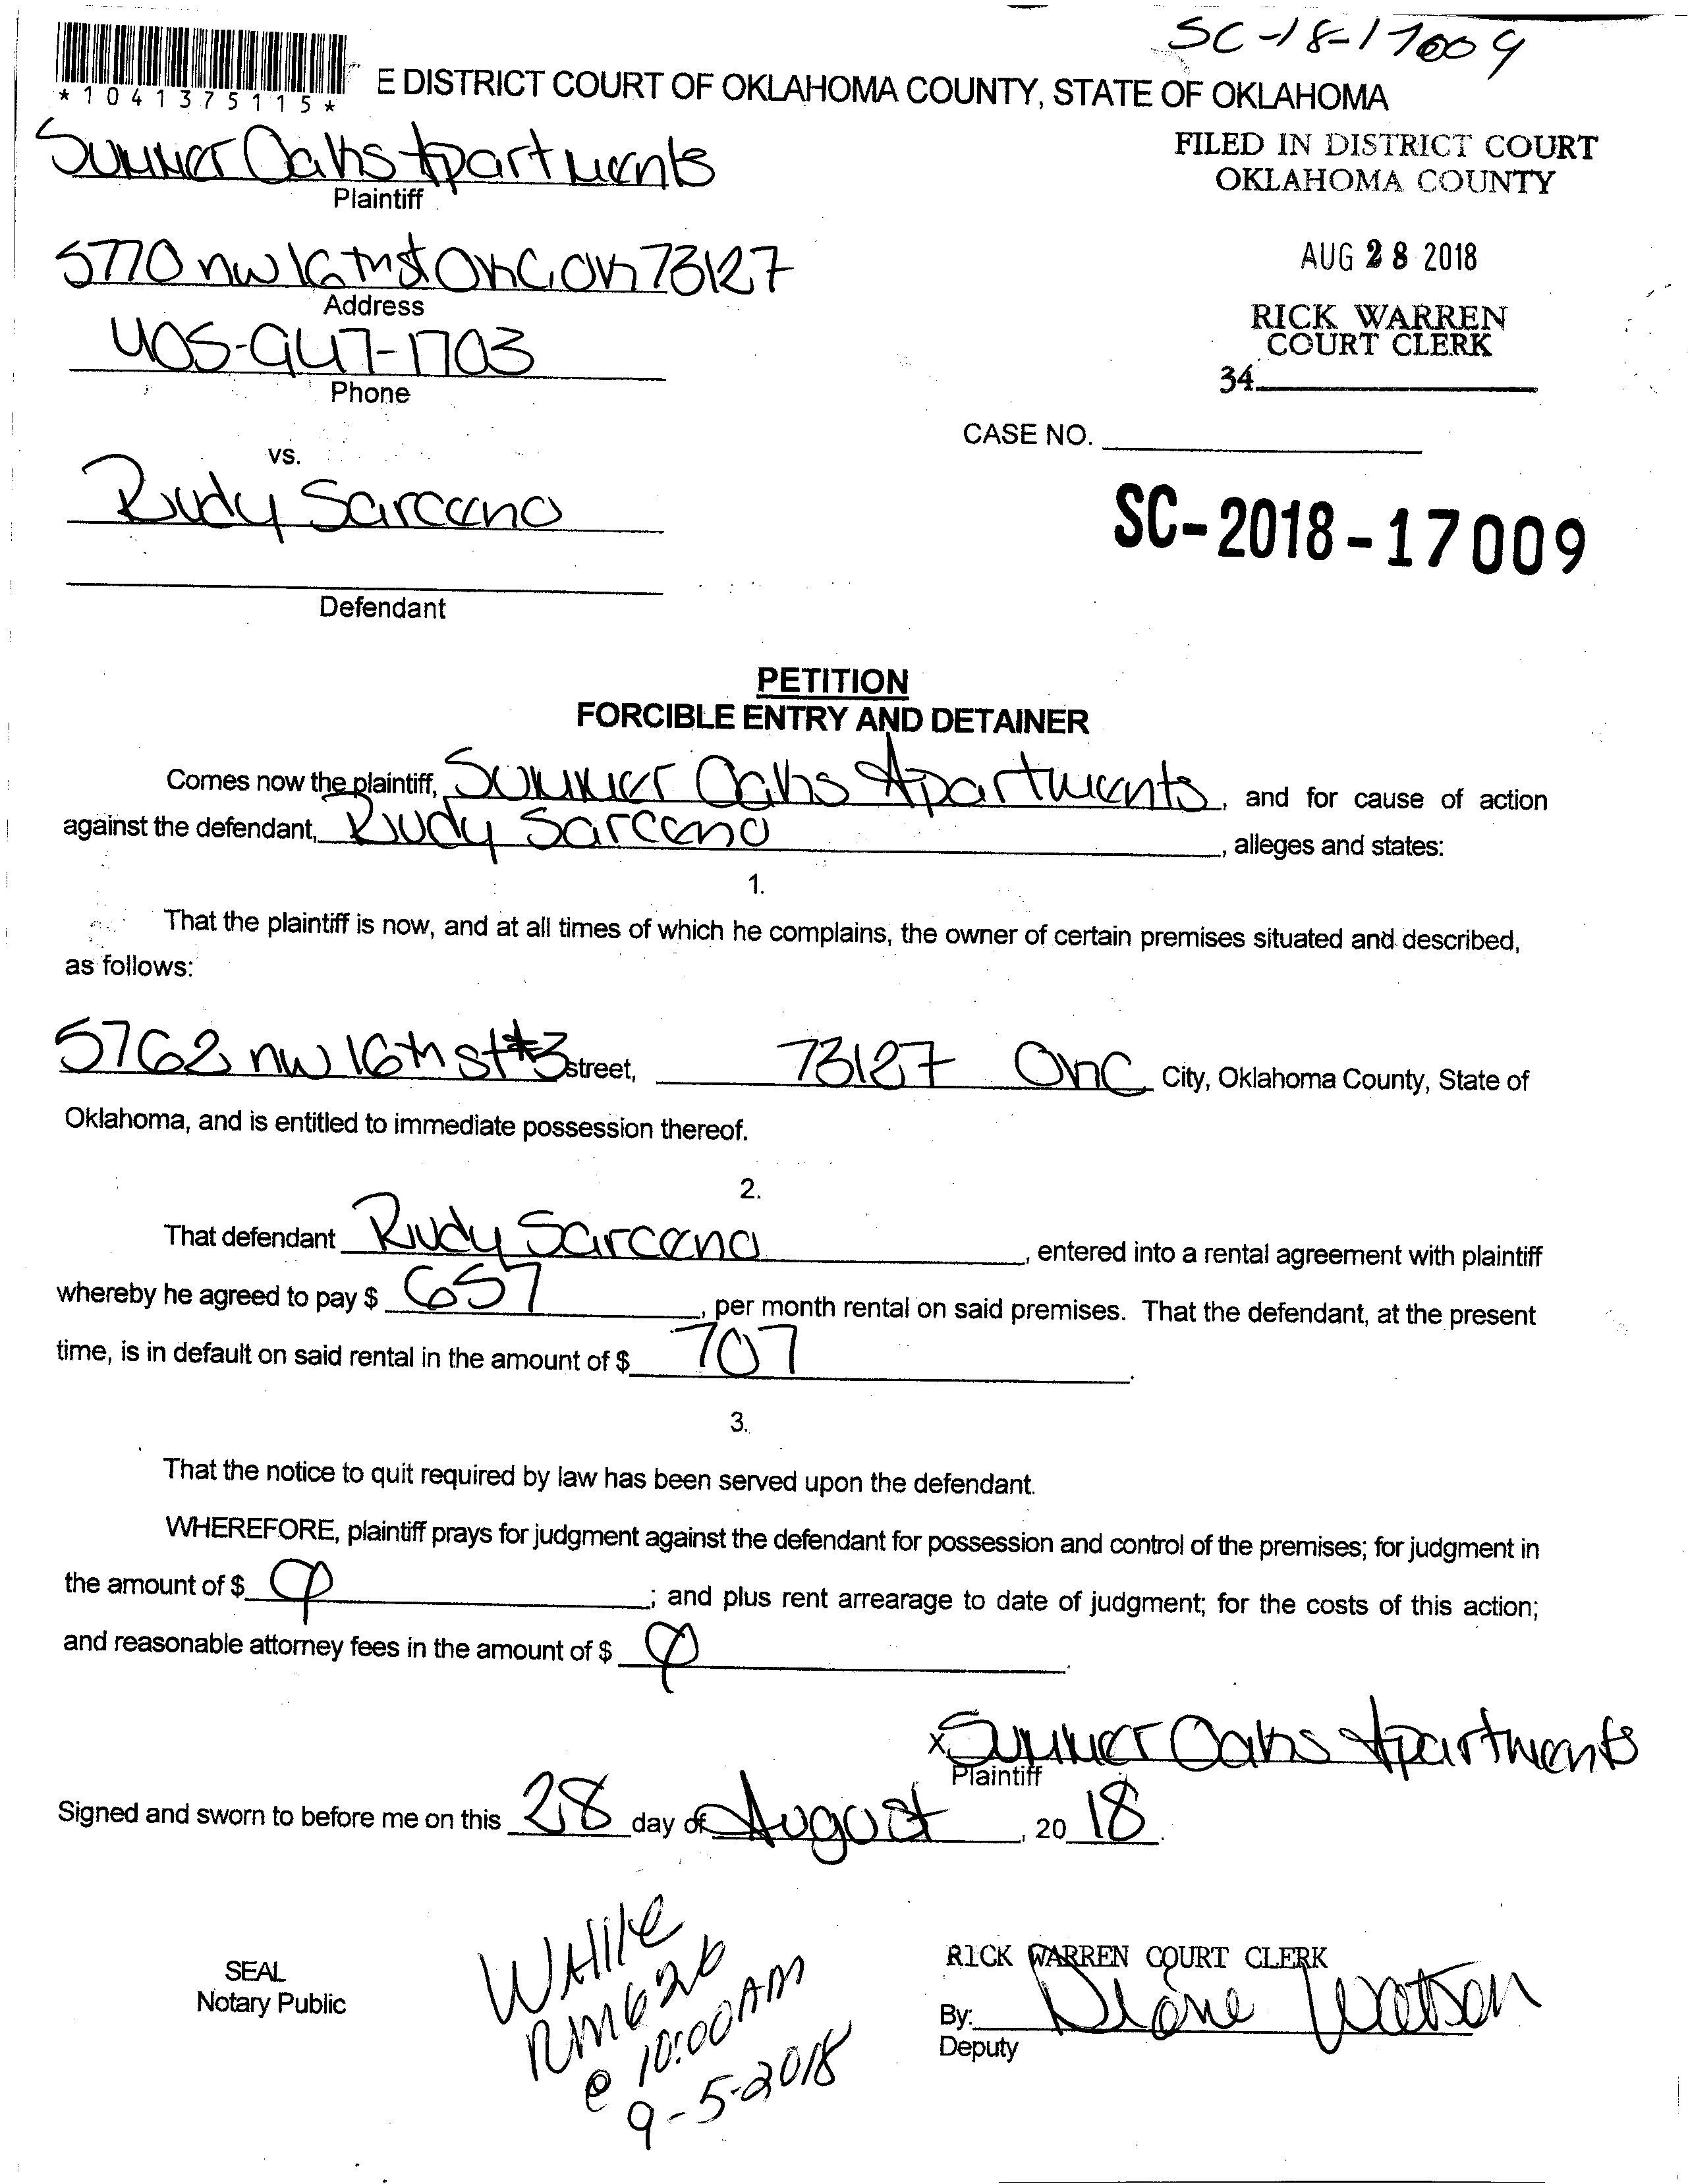 SC-18-17009
*1041375115*
E DISTRICT COURT OF OKLAHOMA COUNTY, STATE OF OKLAHOMA
Summer Oaks Apartments
Plaintiff
FILED IN DISTRICT COURT
OKLAHOMA COUNTY
5770 nw 16th st OKC, OK 73127
Address
AUG 28 2018
405-947-1703
Phone
RICK WARREN
COURT CLERK
34
CASE NO.
vs.
Rudy Sarceno
SC-2018-17009
Defendant
PETITION
FORCIBLE ENTRY AND DETAINER
Comes now the plaintiff, Summer Oaks Apartments, and for cause of action
against the defendant, Rudy Sarceno, alleges and states:
1.
That the plaintiff is now, and at all times of which he complains, the owner of certain premises situated and described,
as follows:
5762 nw 16th st #3 street, 73127 OKC City, Oklahoma County, State of
Oklahoma, and is entitled to immediate possession thereof.
2.
That defendant Rudy Sarceno, entered into a rental agreement with plaintiff
whereby he agreed to pay $ 657, per month rental on said premises. That the defendant, at the present
time, is in default on said rental in the amount of $ 707.
3.
That the notice to quit required by law has been served upon the defendant.
WHEREFORE, plaintiff prays for judgment against the defendant for possession and control of the premises; for judgment in
the amount of $ ; and plus rent arrearage to date of judgment; for the costs of this action;
and reasonable attorney fees in the amount of $ .
x Summer Oaks Apartments
Plaintiff
Signed and sworn to before me on this 28 day of August, 2018.
SEAL
Notary Public
RM 626
@ 10:00 AM
9-5-2018
RICK WARREN COURT CLERK
By: Diane Watson
Deputy